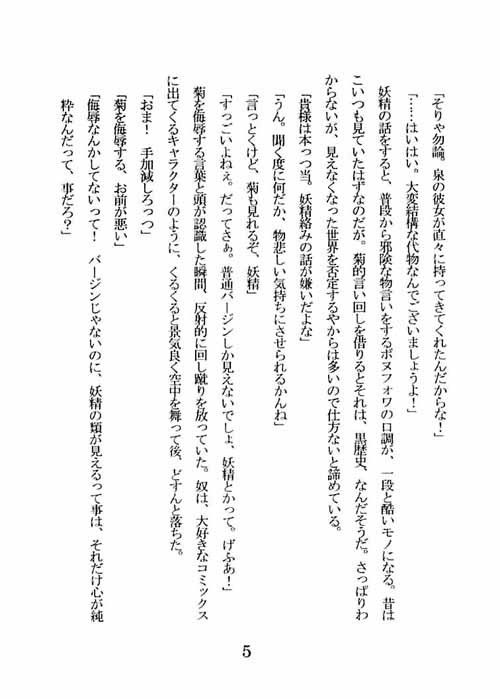 「そりゃ勿論。泉の彼女が直々に持ってきてくれたんだからな！」
「……はいはい。大変結構な代物なんでございましょうよ！」
妖精の話をすると、普段から邪険な物言いをするボヌフォワの口調が、一段と酷いモノになる。昔は
こいつも見ていたはずなのだが。菊的言い回しを借りるとそれは、黒歴史、なんだそうだ。さっぱりわ
からないが、見えなくなった世界を否定するやからは多いので仕方ないと諦めている。
「貴様は本っつ当。妖精絡みの話が嫌いだよな」
「うん。聞く度に何だか、物悲しい気持ちにさせられるかんね」
「言っとくけど、菊も見れるぞ、妖精」
「すっごいよねぇ。だってさぁ。普通バージンしか見えないでしょ、妖精とかって。げふあ！」
菊を侮辱する言葉と頭が認識した瞬間、反射的に回し蹴りを放っていた。奴は、大好きなコミックス
に出てくるキャラクターのように、くるくると景気良く空中を舞って後、どすんと落ちた。
「おま！　手加減しろっつ」
「菊を侮辱する、お前が悪い」
「侮辱なんかしてないって！　バージンじゃないのに、妖精の類が見えるって事は、それだけ心が純
粋なんだって、事だろ？」
5